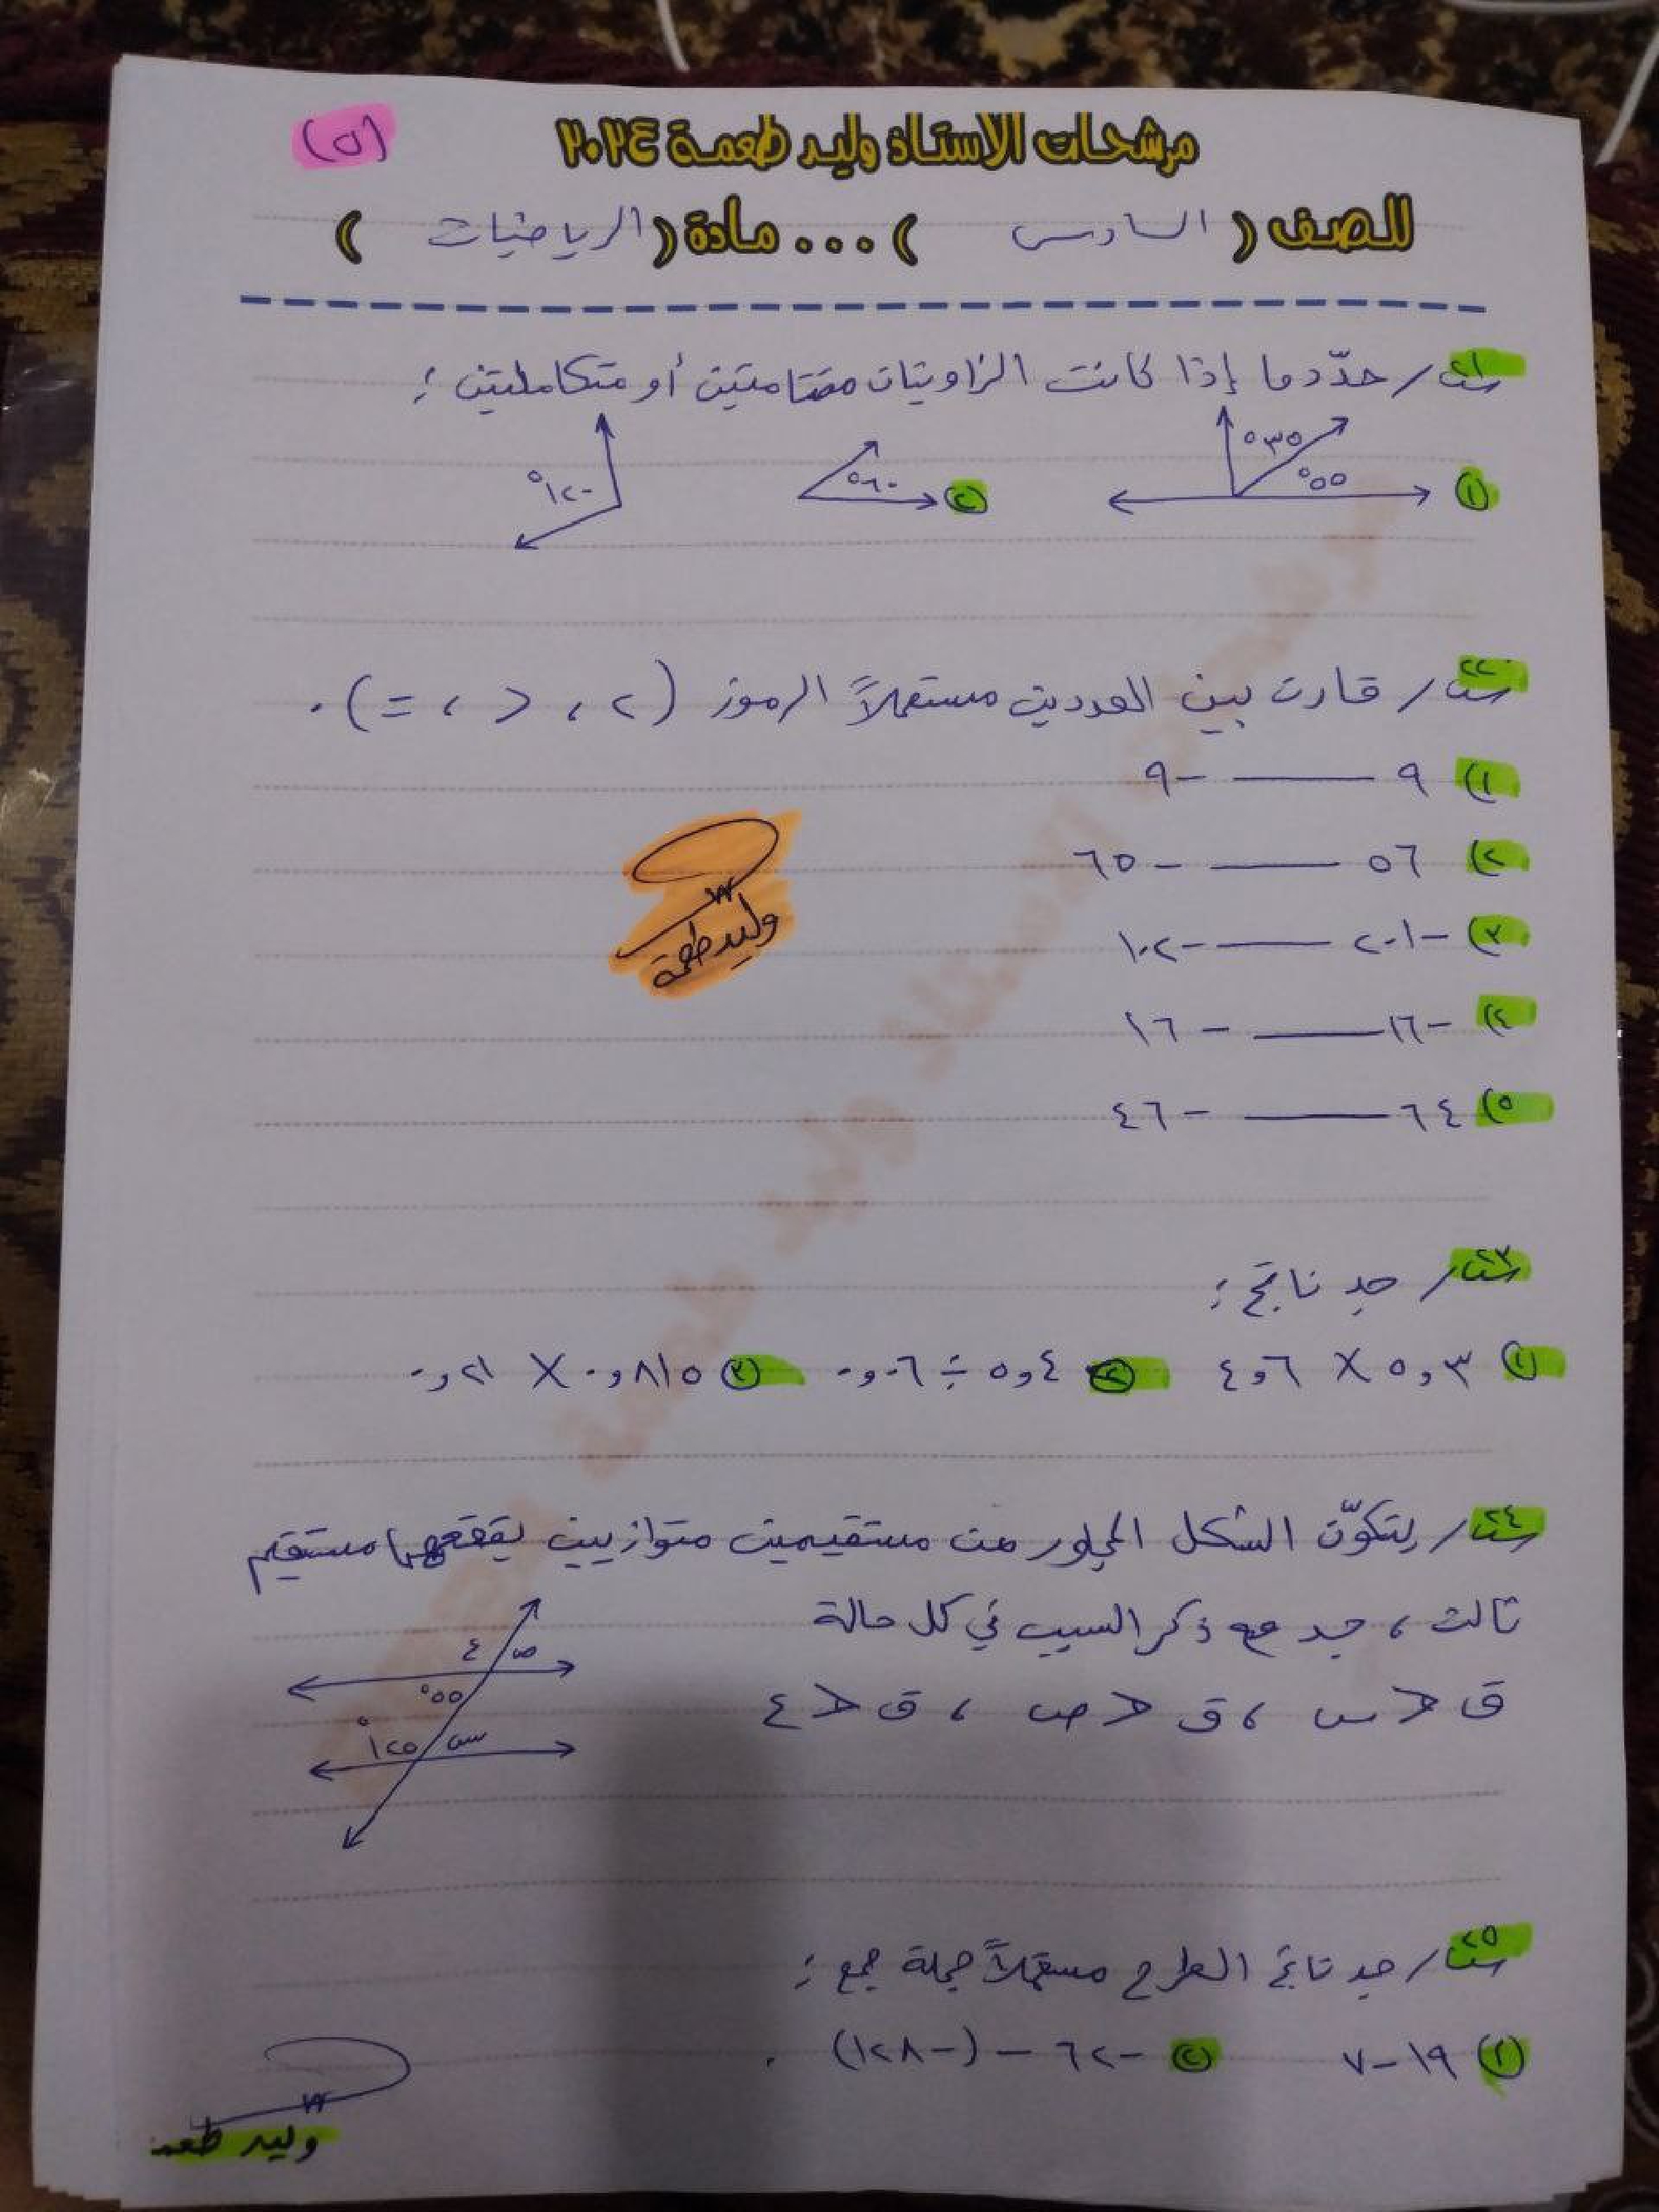 مرشحات الاستاذ وليد طعمة ٢٠٢٤
(٥)
للصف ( السادس ) ... مادة ( الرياضيات )
س٢١/ حدّد ما إذا كانت الزاويتان متتامتين أو متكاملتين :
١ ٣٥° ٥٥° ٢ ٦٠° ١٢٠°
س٢٢/ قارن بين العددين مستعملاً الرموز (> ، < ، =) .
١) ٩ ـــــ -٩
٢) ٥٦ ـــــ -٦٥
٣) -٢٠١ ـــــ -١٠٢
٤) -١٦ ـــــ -١٦
٥) ٦٤ ـــــ -٤٦
وليد طعمة
س٢٣/ جد ناتج :
١ ٥,٣ × ٤,٦ ٢ ٥,٤ ÷ ٠,٠٦ ٣ ٠,٨١٥ × ٠,٢١
س٢٤/ يتكوّن الشكل المجاور من مستقيمين متوازيين يقطعهما مستقيم
ثالث ، جد مع ذكر السبب في كل حالة
ق > س ، ق > ص ، ق > ع
ع ص
٥٥°
١٢٥° س
س٢٥/ جد ناتج الطرح مستعملاً جملة جمع :
١ ١٩-٧ ٢ -٦٢ - (-١٢٨) .
وليد طعمة